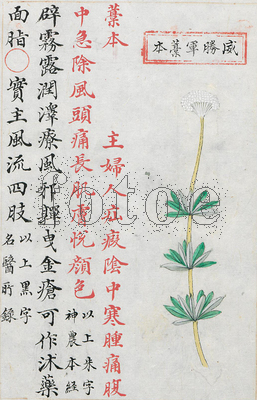 威勝軍藁本
藁本　主婦人疝瘕陰中寒腫痛腹
中急除風頭痛長肌膚悅顏色
以上朱字
神農本經
辟霧露潤澤療風邪嚲曳金瘡可作沐藥
面脂〇實主風流四肢
以上黑字
名醫所錄
fotoe